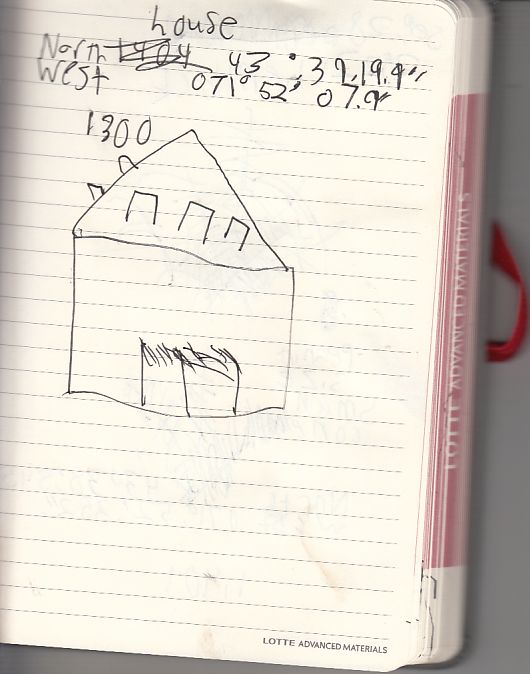 house
North 1404 43° 39.19.9"
West 071° 52' 07.9"
1300
LOTTE ADVANCED MATERIALS
LOTTE ADVANCED MATERIALS